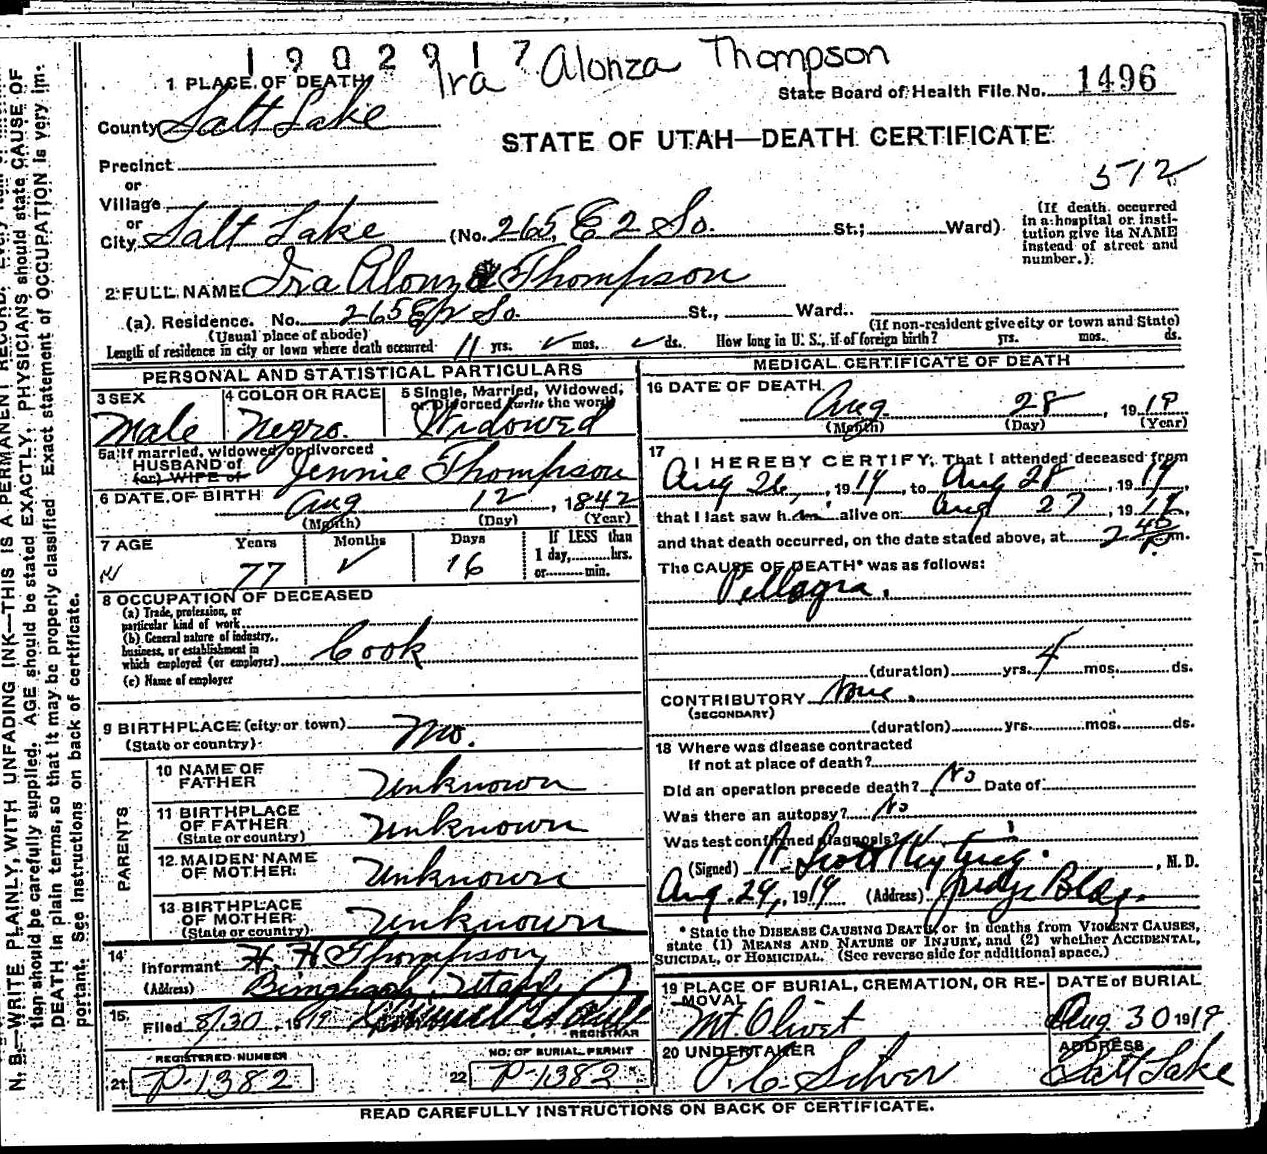 1902917
Ira Alonza Thompson
1 PLACE OF DEATH
State Board of Health File No. 1496
County Salt Lake
STATE OF UTAH—DEATH CERTIFICATE
Precinct
or
Village
or
512
City Salt Lake (No. 265, E 2 So. St.; Ward)
(If death occurred in a hospital or institution give its NAME instead of street and number.)
2 FULL NAME Ira Alonza Thompson
(a). Residence. No. 265 E 2 So. St., Ward.
(Usual place of abode) (If non-resident give city or town and State)
Length of residence in city or town where death occurred 11 yrs. ✓ mos. ✓ ds. How long in U. S., if of foreign birth? yrs. mos. ds.
PERSONAL AND STATISTICAL PARTICULARS
3 SEX Male
4 COLOR OR RACE Negro.
5 Single, Married, Widowed, or Divorced (write the word) Widowed
5a If married, widowed, or divorced
HUSBAND of
(or) WIPE of Jennie Thompson
6 DATE OF BIRTH Aug 12, 1842
(Month) (Day) (Year)
7 AGE Years Months Days If LESS than
1 day, hrs.
or min.
77 ✓ 16
8 OCCUPATION OF DECEASED
(a) Trade, profession, or
particular kind of work
(b) General nature of industry,
business, or establishment in
which employed (or employer) Cook
(c) Name of employer
9 BIRTHPLACE (city or town) Mo.
(State or country)
PARENTS
10 NAME OF FATHER Unknown
11 BIRTHPLACE OF FATHER (State or country) Unknown
12 MAIDEN NAME OF MOTHER Unknown
13 BIRTHPLACE OF MOTHER (State or country) Unknown
14 Informant H. H Thompson
(Address) Bingham, Utah
15 Filed 8/30, 1919
REGISTRAR
REGISTERED NUMBER
21 P-1382
NO. OF BURIAL PERMIT
22 P-1382
MEDICAL CERTIFICATE OF DEATH
16 DATE OF DEATH Aug. 28, 1919
(Month) (Day) (Year)
17 I HEREBY CERTIFY, That I attended deceased from
Aug 26, 1919, to Aug 28, 1919,
that I last saw him alive on Aug 27, 1919,
and that death occurred, on the date stated above, at 2 45 P. m.
The CAUSE OF DEATH* was as follows:
Pellagra.
(duration) yrs. 4 mos. ds.
CONTRIBUTORY None.
(SECONDARY)
(duration) yrs. mos. ds.
18 Where was disease contracted
If not at place of death?
Did an operation precede death? No Date of
Was there an autopsy? No
Was test confirmed diagnosis?
(Signed) Scott, M. D.
Aug. 29, 1919 (Address) Judge Bldg.
* State the DISEASE CAUSING DEATH, or in deaths from VIOLENT CAUSES,
state (1) MEANS AND NATURE OF INJURY, and (2) whether ACCIDENTAL,
SUICIDAL, or HOMICIDAL. (See reverse side for additional space.)
19 PLACE OF BURIAL, CREMATION, OR REMOVAL Mt. Olivet
DATE of BURIAL Aug 30 1919
20 UNDERTAKER
ADDRESS Salt Lake
READ CAREFULLY INSTRUCTIONS ON BACK OF CERTIFICATE.
N. B.—WRITE PLAINLY, WITH UNFADING INK—THIS IS A PERMANENT RECORD.
tion should be carefully supplied. AGE should be stated EXACTLY. PHYSICIANS should state CAUSE OF
DEATH in plain terms, so that it may be properly classified. Exact statement of OCCUPATION is very im-
portant. See instructions on back of certificate.